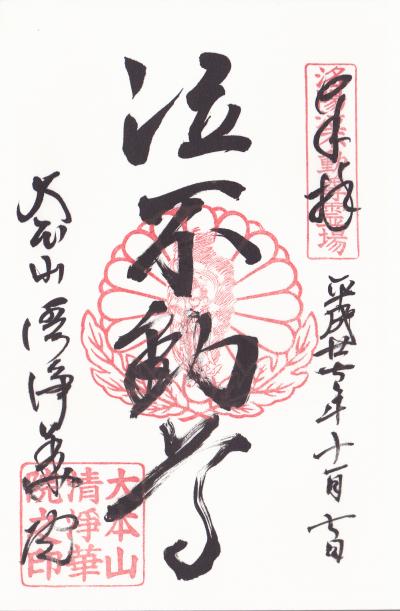 奉拝
洛陽浄不動尊霊場
平成廿七年十一月七日
泣不動尊
大本山清浄華院
大本山
清浄華
院之印